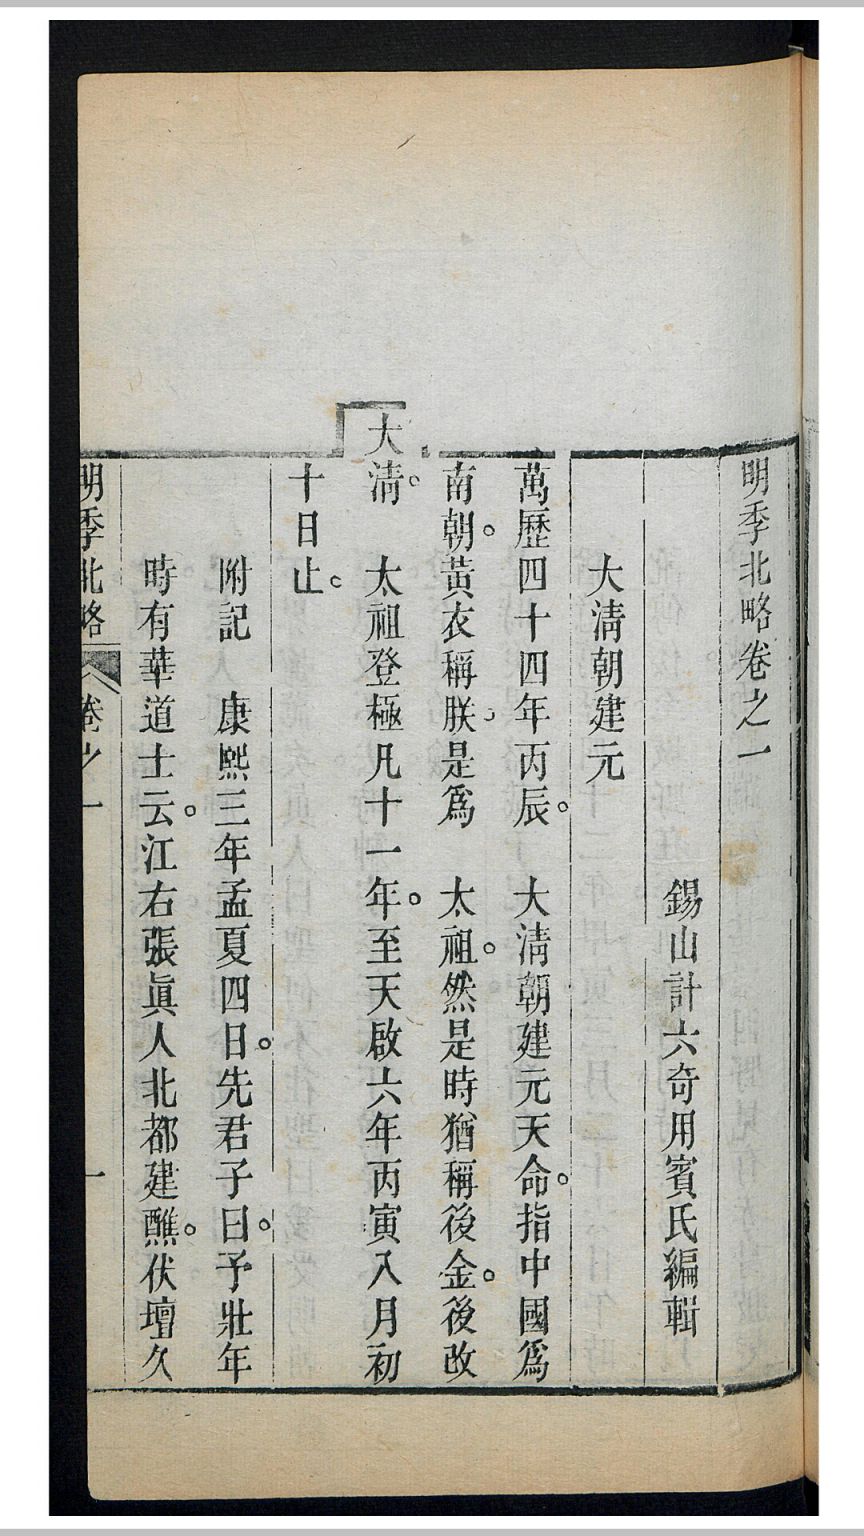 明季北略卷之一
錫山計六奇用賓氏編輯
大清朝建元
萬歷四十四年丙辰。　大清朝建元天命。指中國爲
南朝。黃衣稱朕。是爲　太祖。然是時猶稱後金。後改
大清。　太祖登極凡十一年。至天啟六年丙寅八月初
十日止。
附記　康熙三年孟夏四日。先君子曰。予壯年
時有華道士云。江右張眞人北都建醮。伏壇久
明季北略　卷之一　一